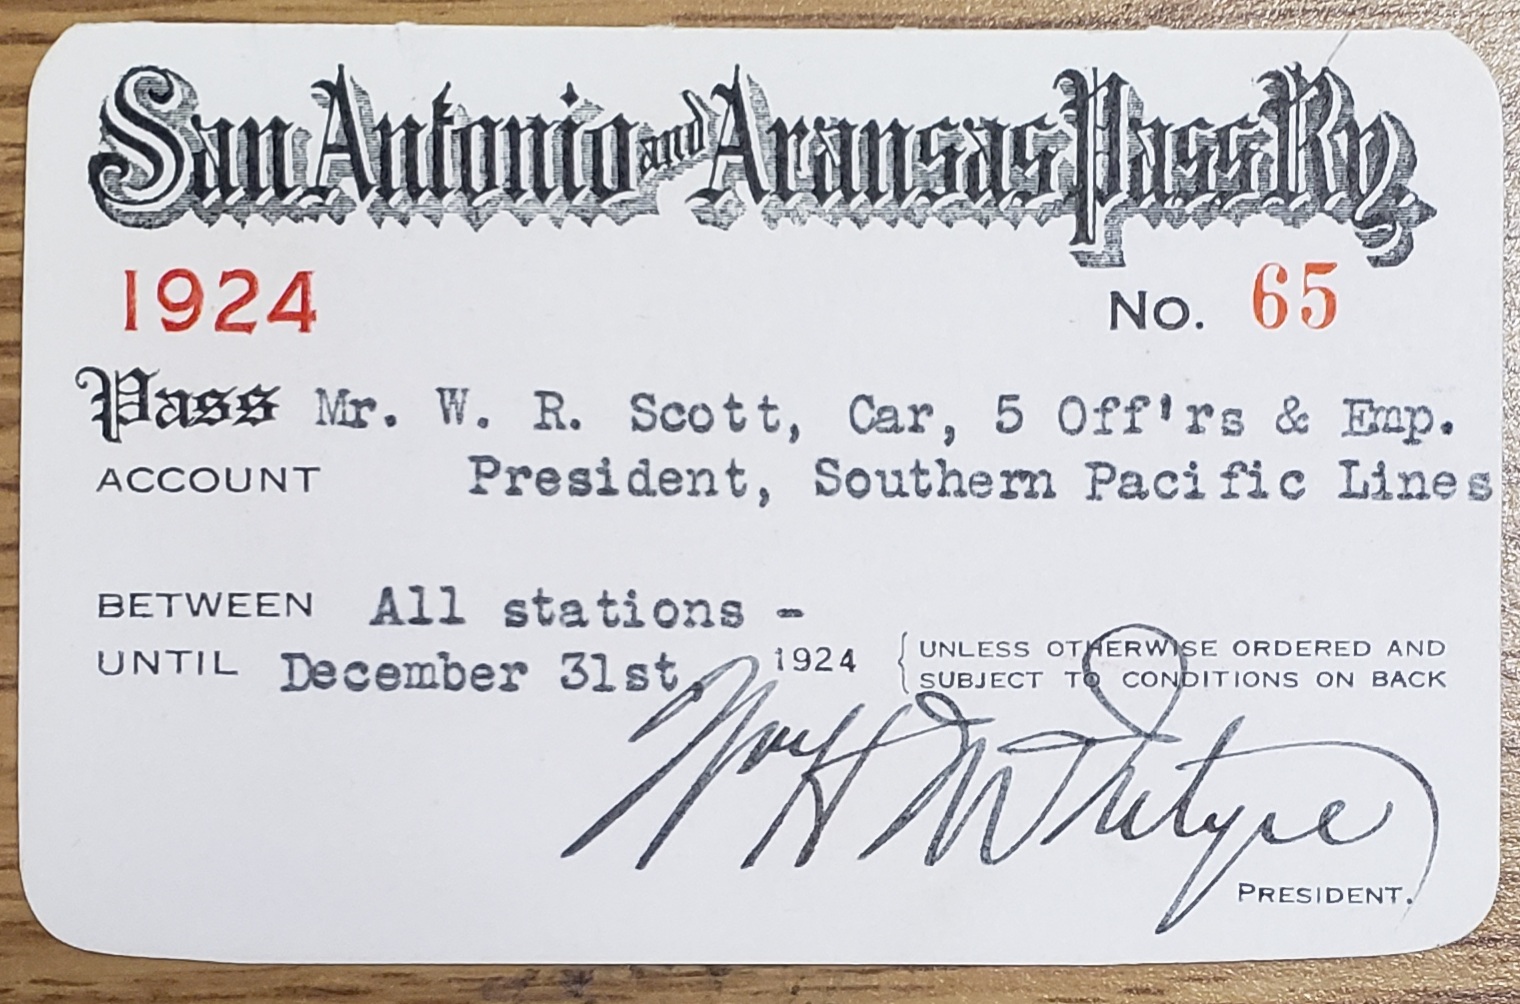 San Antonio and Aransas Pass Ry.
1924 No. 65
Pass Mr. W. R. Scott, Car, 5 Off'rs & Emp.
ACCOUNT President, Southern Pacific Lines
BETWEEN All stations -
UNTIL December 31st, 1924 { UNLESS OTHERWISE ORDERED AND
SUBJECT TO CONDITIONS ON BACK
Wm H McIntyre
PRESIDENT.